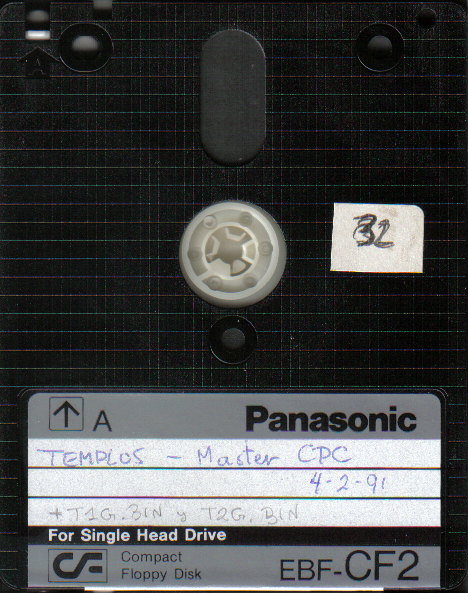 A
B2
A Panasonic
TEMPLOS - Master CPC
4-2-91
+ T1G.BIN y T2G.BIN
For Single Head Drive
CF Compact
Floppy Disk
EBF-CF2